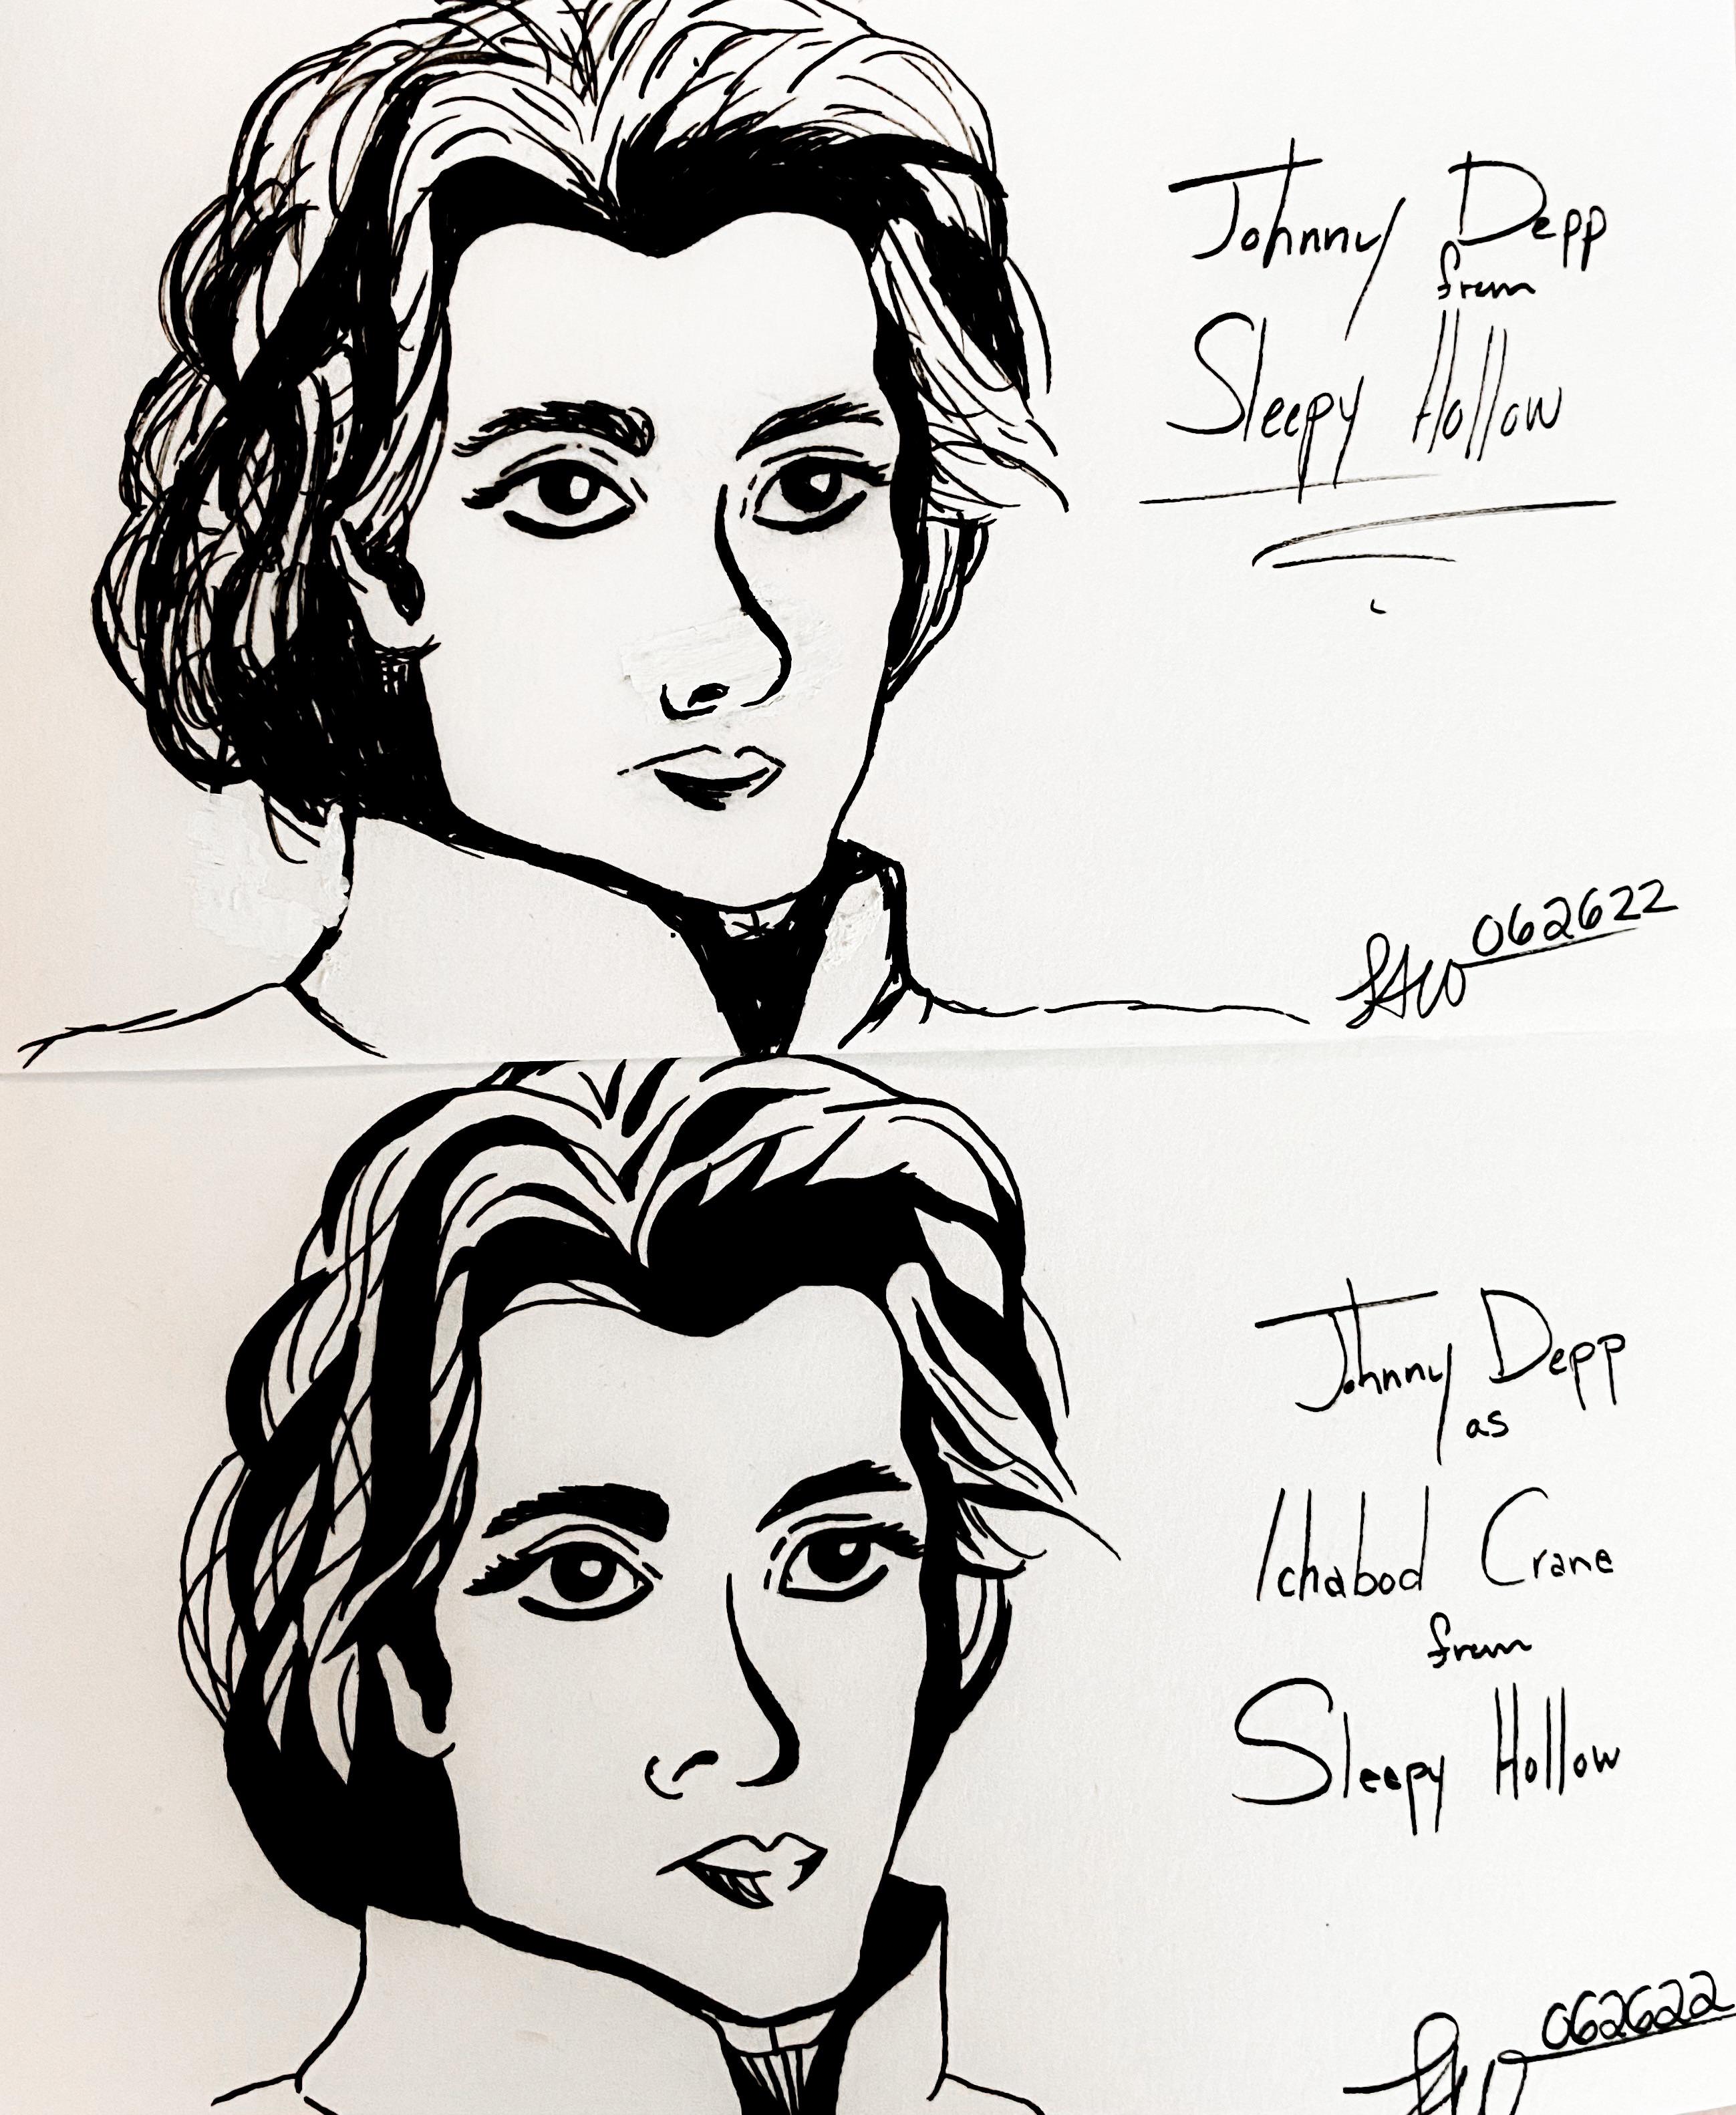 Johnny Depp
from
Sleepy Hollow
062622
Johnny Depp
as
Ichabod Crane
from
Sleepy Hollow
062622